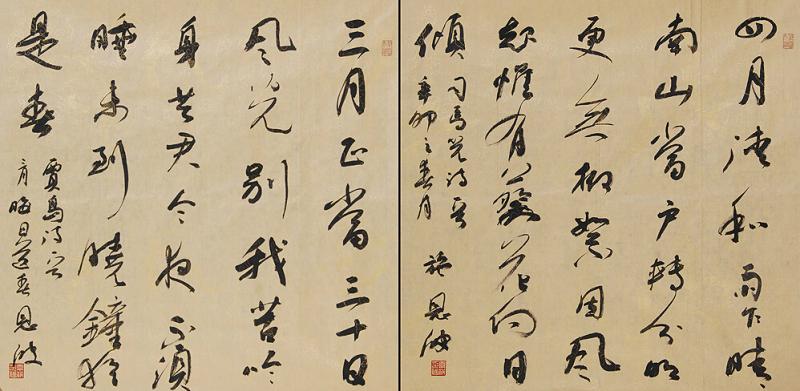 四月清和雨乍晴
南山當户轉分明
更無柳絮因風
起惟有葵花向日
傾
司馬光詩
辛卯之春月 施恩波
三月正當三十日
風光别我苦吟
身共君今夜不須
睡未到曉鐘猶
是春
賈島詩
月晦日送春 恩波